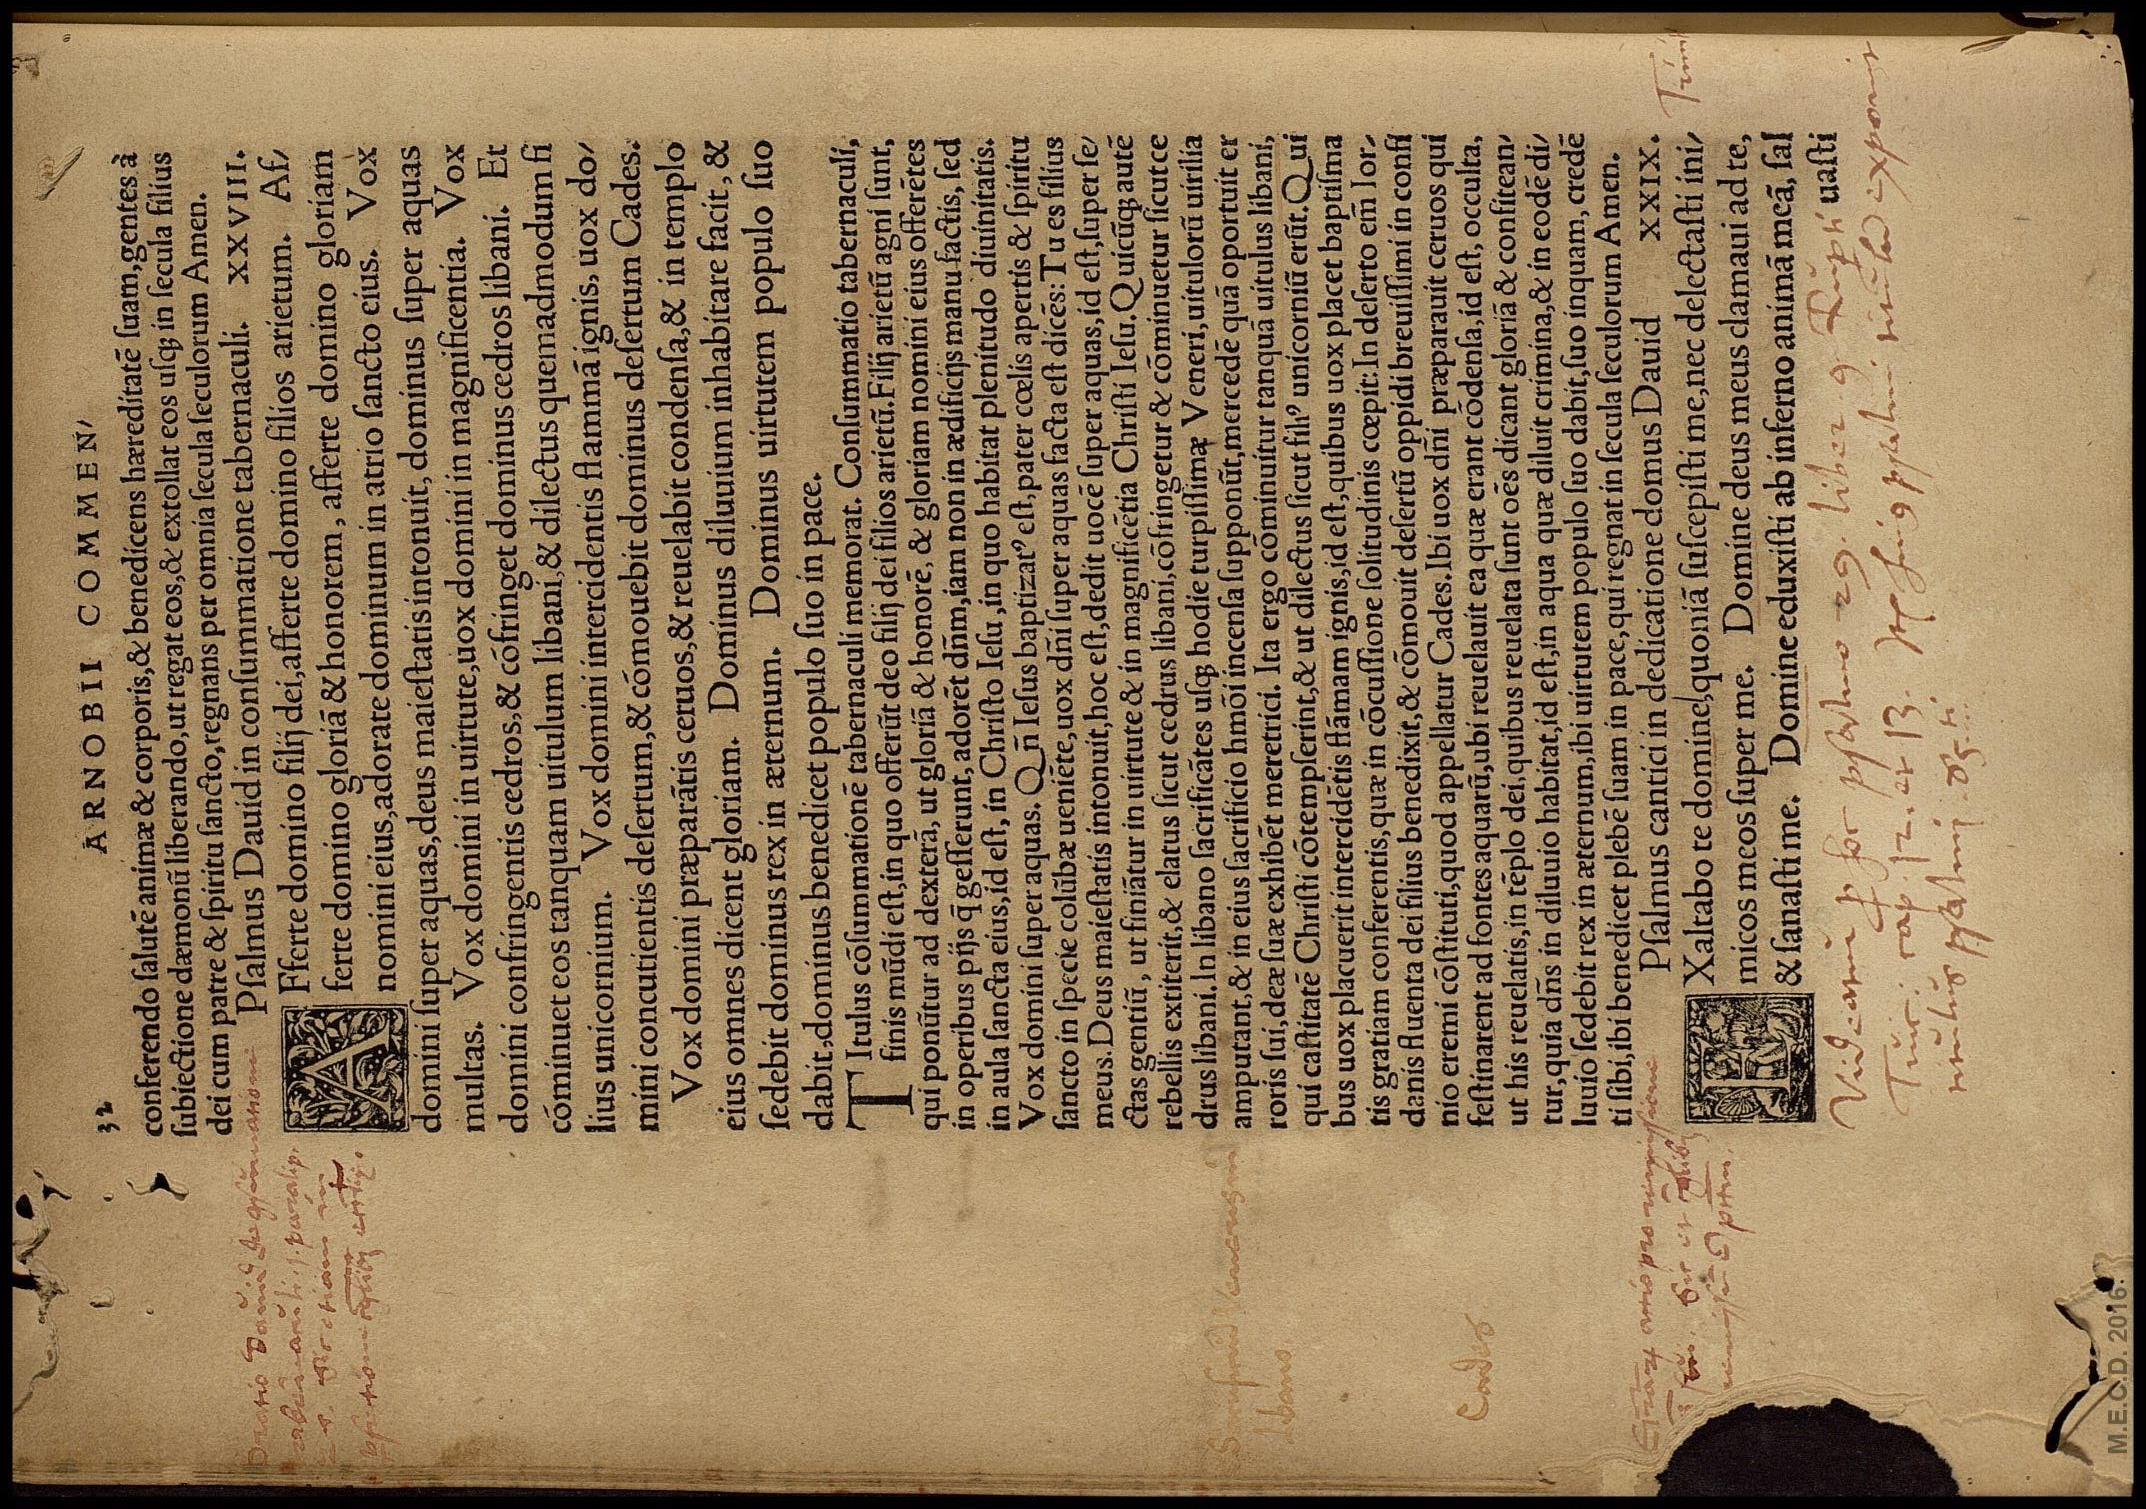 32
ARNOBII COMMEN/
conferendo ſalutē animæ & corporis, & benedicens hæreditatē ſuam, gentes à
ſubiectione dæmonũ liberando, ut regat eos, & extollat eos uſqꝫ in ſecula filius
dei cum patre & ſpiritu ſancto, regnans per omnia ſecula ſeculorum Amen.
Pſalmus Dauid in conſummatione tabernaculi. XXVIII.
AFferte domino filij dei, afferte domino filios arietum. Af/
ferte domino gloriā & honorem, afferte domino gloriam
nomini eius, adorate dominum in atrio ſancto eius. Vox
domini ſuper aquas, deus maieſtatis intonuit, dominus ſuper aquas
multas. Vox domini in uirtute, uox domini in magnificentia. Vox
domini confringentis cedros, & cōfringet dominus cedros libani. Et
cōminuet eos tanquam uitulum libani, & dilectus quemadmodum fi
lius unicornium. Vox domini intercidentis flammā ignis, uox do/
mini concutientis deſertum, & cōmouebit dominus deſertum Cades.
Vox domini præparātis ceruos, & reuelabit condenſa, & in templo
eius omnes dicent gloriam. Dominus diluuium inhabitare facit, &
ſedebit dominus rex in æternum. Dominus uirtutem populo ſuo
dabit, dominus benedicet populo ſuo in pace.
TItulus cōſummationē tabernaculi memorat. Conſummatio tabernaculi,
finis mũdi eſt, in quo offerũt deo filij dei filios arietũ. Filij arietũ agni ſunt,
qui ponũtur ad dexterā, ut gloriā & honorē, & gloriam nomini eius offerētes
in operibus pijs q̃ geſſerunt, adorēt dñm, iam non in ædificijs manu factis, ſed
in aula ſancta eius, id eſt, in Chriſto Ieſu, in quo habitat plenitudo diuinitatis.
Vox domini ſuper aquas. Qñ Ieſus baptizatꝰ eſt, pater cœlis apertis & ſpiritu
ſancto in ſpecie colũbæ ueniēte, uox dñi ſuper aquas facta eſt dicēs: Tu es filius
meus. Deus maieſtatis intonuit, hoc eſt, dedit uocē ſuper aquas, id eſt, ſuper ſe/
ctas gentiũ, ut finiātur in uirtute & in magnificētia Chriſti Ieſu. Quicũqꝫ autē
rebellis extiterit, & elatus ſicut cedrus libani, cōfringetur & cōminuetur ſicut ce
drus libani. In libano ſacrificātes uſqꝫ hodie turpiſſimæ Veneri, uitulorũ uirilia
amputant, & in eius ſacrificio hmōi incenſa ſupponũt, mercedē quā oportuit er
roris ſui, deæ ſuæ exhibēt meretrici. Ita ergo cōminuitur tanquā uitulus libani,
qui caſtitatē Chriſti cōtempſerint, & ut dilectus ſicut filiꝰ unicorniũ erũt. Qui
bus uox placuerit intercidētis flāmam ignis, id eſt, quibus uox placet baptiſma
tis gratiam conferentis, quæ in cōcuſſione ſolitudinis cœpit: In deſerto em̄ Ior/
danis fluenta dei filius benedixit, & cōmouit deſertũ oppidi breuiſſimi in confi
nio eremi cōſtituti, quod appellatur Cades. Ibi uox dñi præparauit ceruos qui
feſtinarent ad fontes aquarũ, ubi reuelauit ea quæ erant cōdenſa, id eſt, occulta,
ut his reuelatis, in tēplo dei, quibus reuelata ſunt oēs dicant gloriā & confitean/
tur, quia dñs in diluuio habitat, id eſt, in aqua quæ diluit crimina, & in eodē di/
luuio ſedebit rex in æternum, ibi uirtutem populo ſuo dabit, ſuo inquam, credē
ti ſibi, ibi benedicet plebē ſuam in pace, qui regnat in ſecula ſeculorum Amen.
Pſalmus cantici in dedicatione domus Dauid XXIX.
EXaltabo te domine, quoniā ſuſcepiſti me, nec delectaſti ini/
micos meos ſuper me. Domine deus meus clamaui ad te,
& ſanaſti me. Domine eduxiſti ab inferno animā meā, ſal
uaſti
libano
Cades.
M.E.C.D. 2016